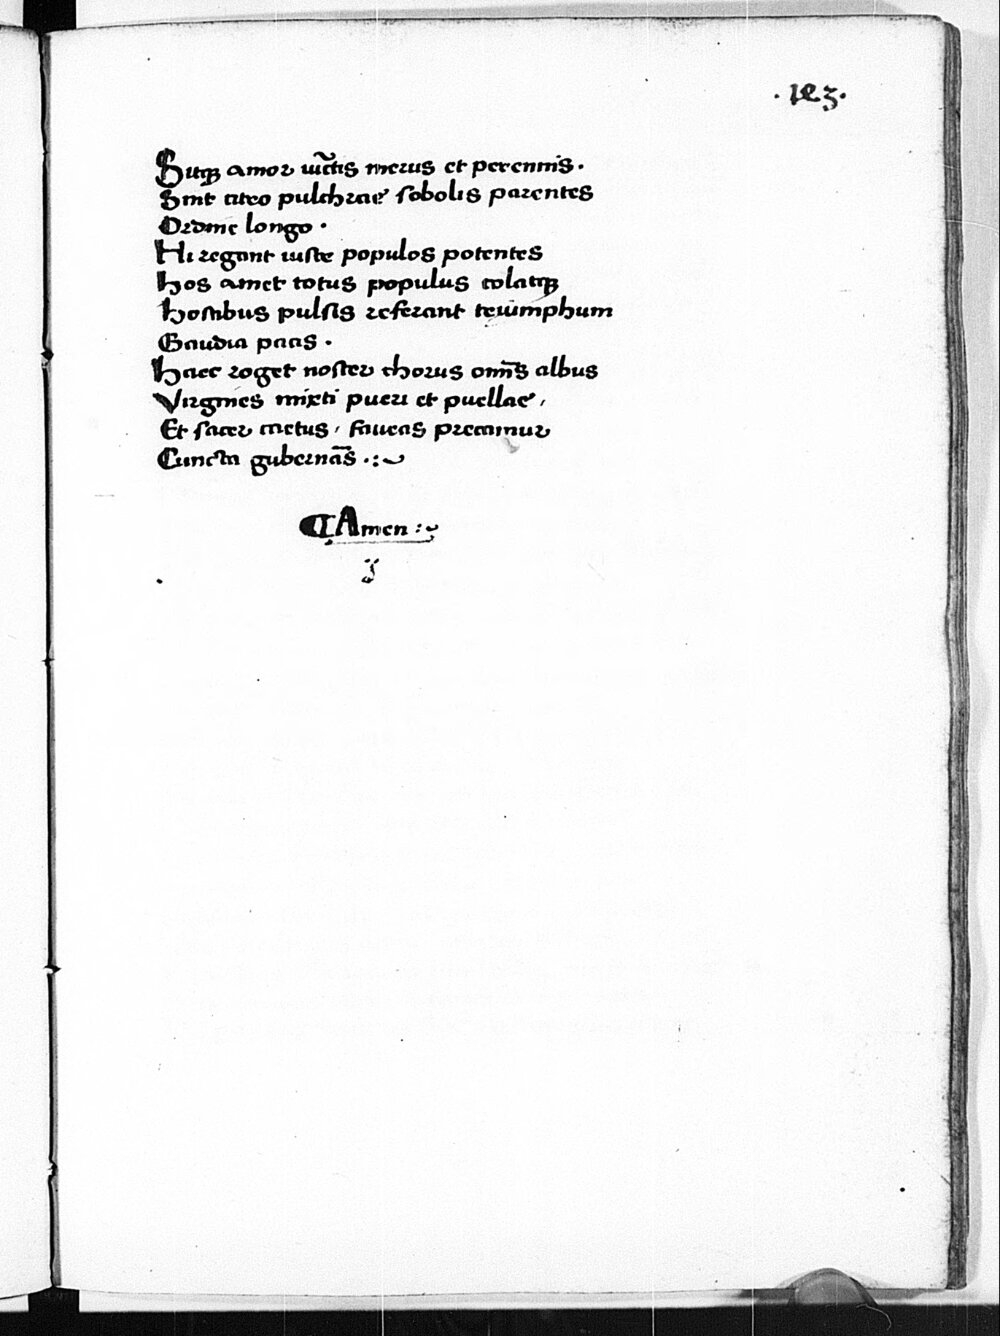 .123.
Sitqꝫ amor iūctis merus et perennis.
Sint cito pulchrae sobolis parentes
Ordine longo.
Hi regant iuste populos potentes
hos amet totus populus colatqꝫ
hostibus pulsis referant triumphum
Gaudia pacis.
haec roget noster chorus om̄s albus
Virgines mixti pueri et puellae,
Et sacer coetus, faueas precamur
Cuncta gubernās .:~
¶ Amen :~